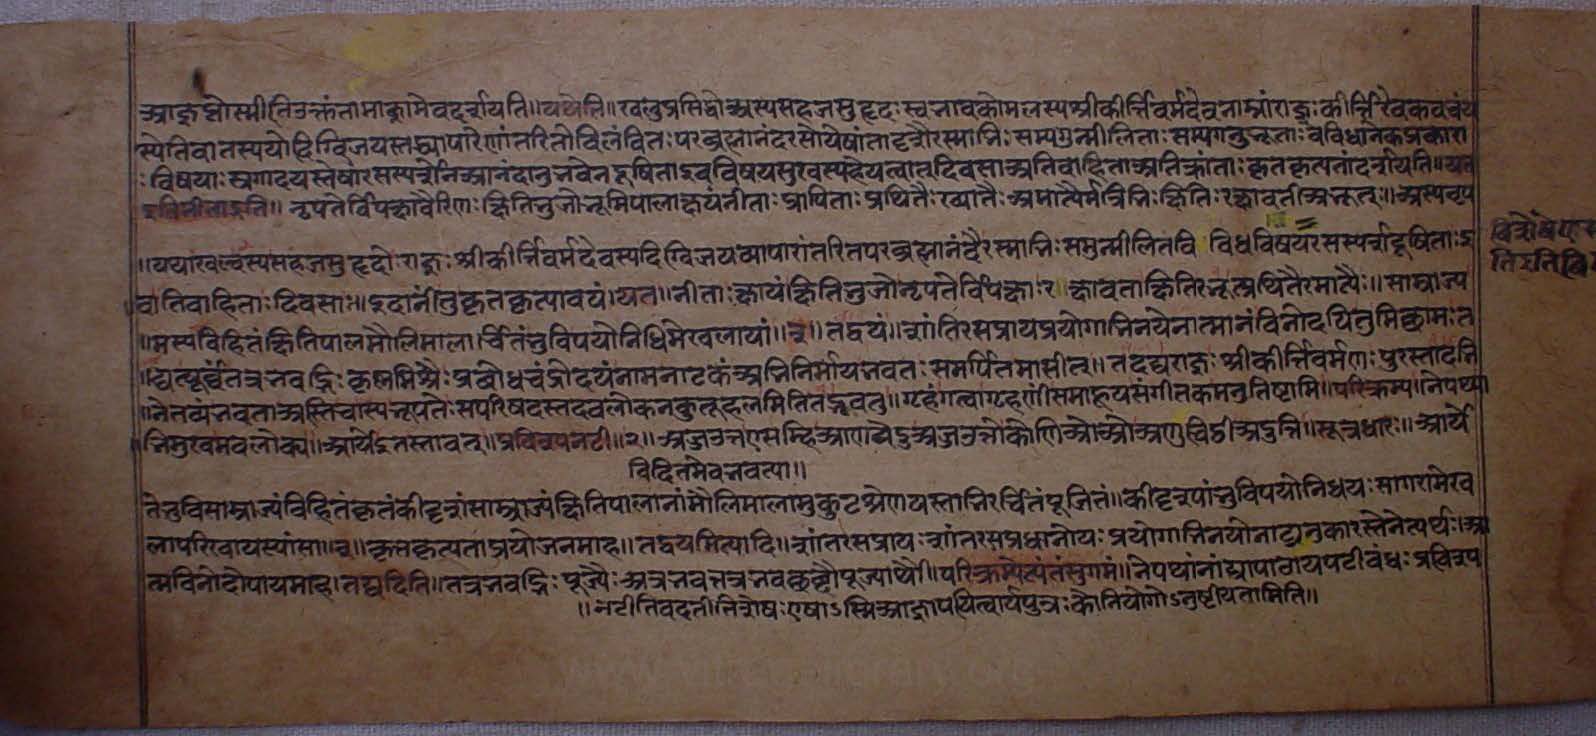 आज्ञप्तोस्मीतिउक्तंतामाज्ञामेवदर्शयति॥यथेति॥खलुप्रसिद्धोअस्यसहजसुहृदःस्वभावकोमलस्यश्रीकीर्त्तिवर्मदेवनाम्नांराज्ञःकीर्त्तिरेवकवचंय
स्येतिवातस्ययोदिग्विजयस्तद्व्यापारेणांतरितोविलंबितःपरब्रह्मानंदरसोयेषांतादृशैरस्माभिःसम्यगुन्मीलिताःसम्यगनुभूताःवविधानेकप्रकारा
ःविषयाःस्रगादयस्तेषांरसस्पर्शेनआनंदानुभवेनदूषिताइवविषयसुखस्यहेयत्वात्दिवसाअतिवाहिताअतिक्रांताःकृतकृत्यतांदर्शयति॥यत
इतिनीताइति॥नृपतेर्विपक्षावैरिणःक्षितिभुजोभूमिपालाक्षयंनीताःप्रापिताःप्रथितैःख्यातैःअमात्यैर्मंत्रिभिःक्षितिःरक्षावतीअभूत्॥अस्यनृप
॥यथाखल्वस्यसहजसुहृदोराज्ञःश्रीकीर्त्तिवर्मदेवस्यदिग्विजयव्यापारांतरितपरब्रह्मानंदैरस्माभिःसमुन्मीलितवि विधविषयरसस्पर्शदूषिताःइ
वातिवाहिताःदिवसाः॥इदानींतुकृतकृत्यावयं।यत॥नीताःक्षयंक्षितिभुजोनृपतेर्विपक्षार॥क्षावताक्षितिरभूत्प्रथितैरमात्यैः॥साम्राज्य
॥मस्यविहितंक्षितिपालमौलिमाला।र्चितंभुविपयोनिधिमेखलायां॥३॥तद्वयं॥शांतिरसप्रायप्रयोगाभिनयेनात्मानंविनोदयितुमिछामःत
॥द्यत्पूर्वंतत्रभवद्भिःकृष्णमिश्रैःप्रबोधचंद्रोदयंनामनाटकंअभिनिर्मायभवतःसमर्पितमासीत्॥तदद्यराज्ञःश्रीकीर्त्तिवर्मणःपुरस्तादभि
॥नेतव्यंभवताअस्तिचास्यभूपतेःसपरिषदस्तदवलोकनकुतूहलमितितद्भवतु॥गृहंगत्वागृहणींसमाहूयसंगीतकमनुतिष्टामि॥परिक्रम्य।नेपथ्या
भिमुखमवलोक्य॥आर्येइतस्तावत्॥प्रविश्यनटी॥२॥अज्जउत्त ॥सूत्रधारः॥आर्ये
विदितमेवभवत्या॥
तेभुविसाम्राज्यंविहितंकृतंकीदृशंसाम्राज्यंक्षितिपालानांमौलिमालामुकुटश्रेणयस्ताभिरर्चितंपूजितं॥कीदृश्यांभुविपयोनिधयःसागरामेख
लापरिखायस्यांसा॥३॥कृतकृत्यताप्रयोजनमाह॥तद्वयमित्यादि॥शांतरसप्रायःशांतरसप्रधानोयःप्रयोगाभिनयोनाट्यानुकारस्तेनेत्यर्थः।आ
त्मविनोदोपायमाह।तद्यदिति॥तत्रभवद्भिःपूज्यैःअत्रभवत्तत्रभवछब्दौपूज्यार्थौ॥परिक्रम्येत्यंतंसुगमं॥नेपथ्यं पटीबंधःप्रविश्य
॥नटीतिवदतीतिशेषःएषाऽस्मिआज्ञापयित्वार्यपुत्रःकोनियोगोऽनुष्टीयतामिति॥